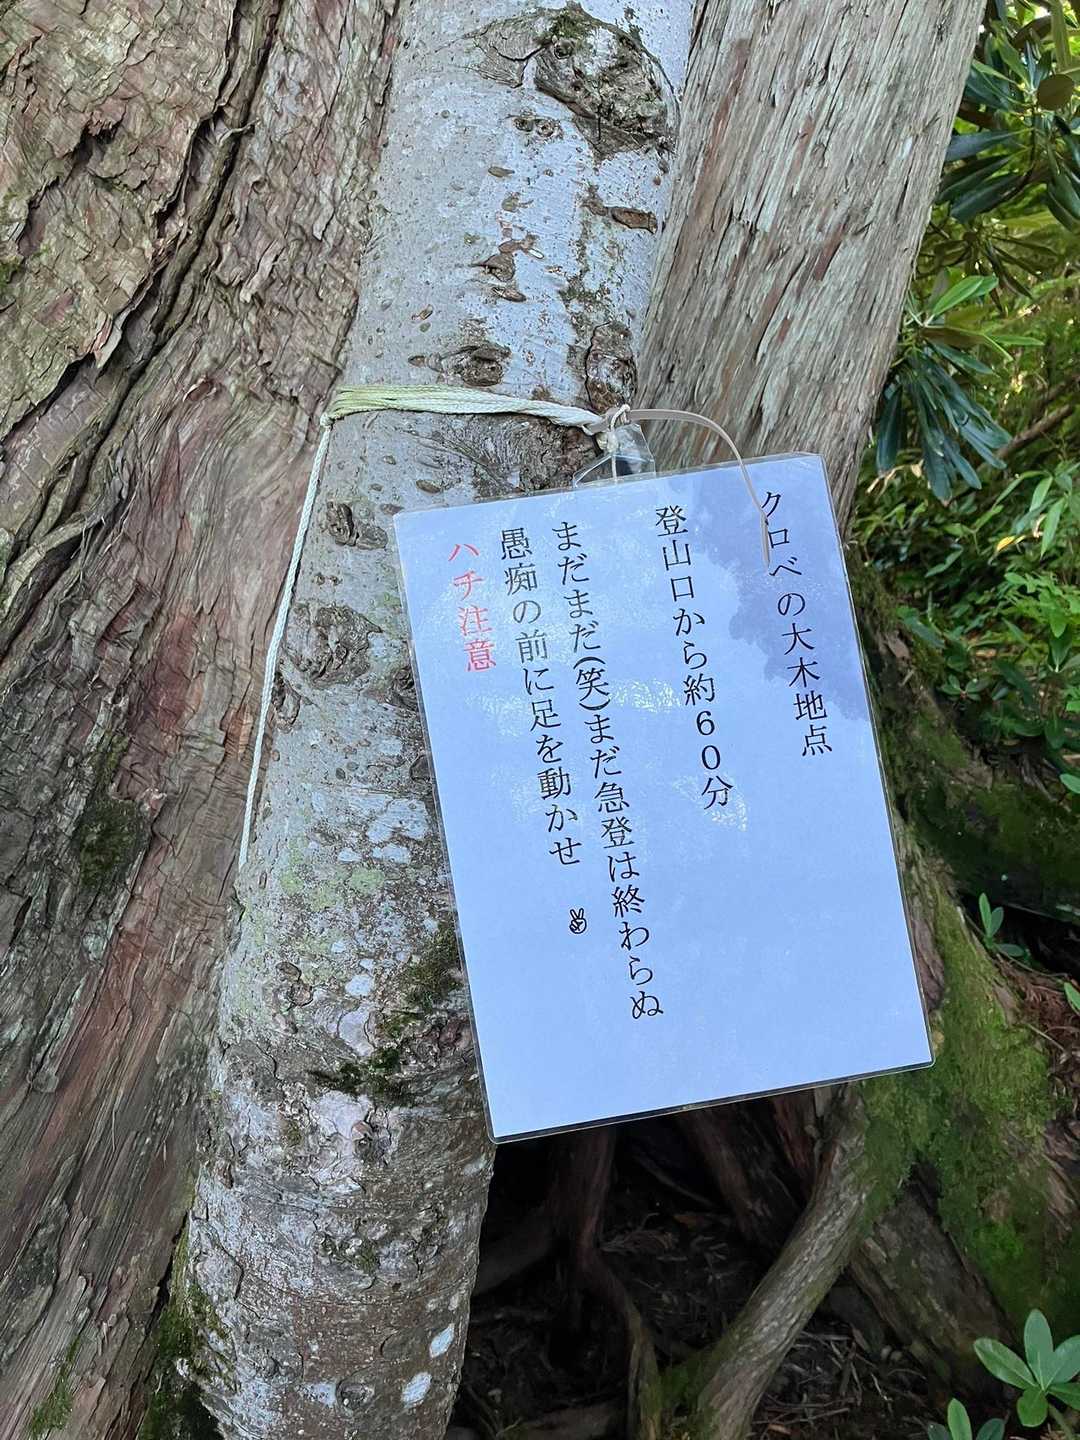 クロベの大木地点
登山口から約６０分
まだまだ(笑)まだ急登は終わらぬ
愚痴の前に足を動かせ ✌
ハチ注意